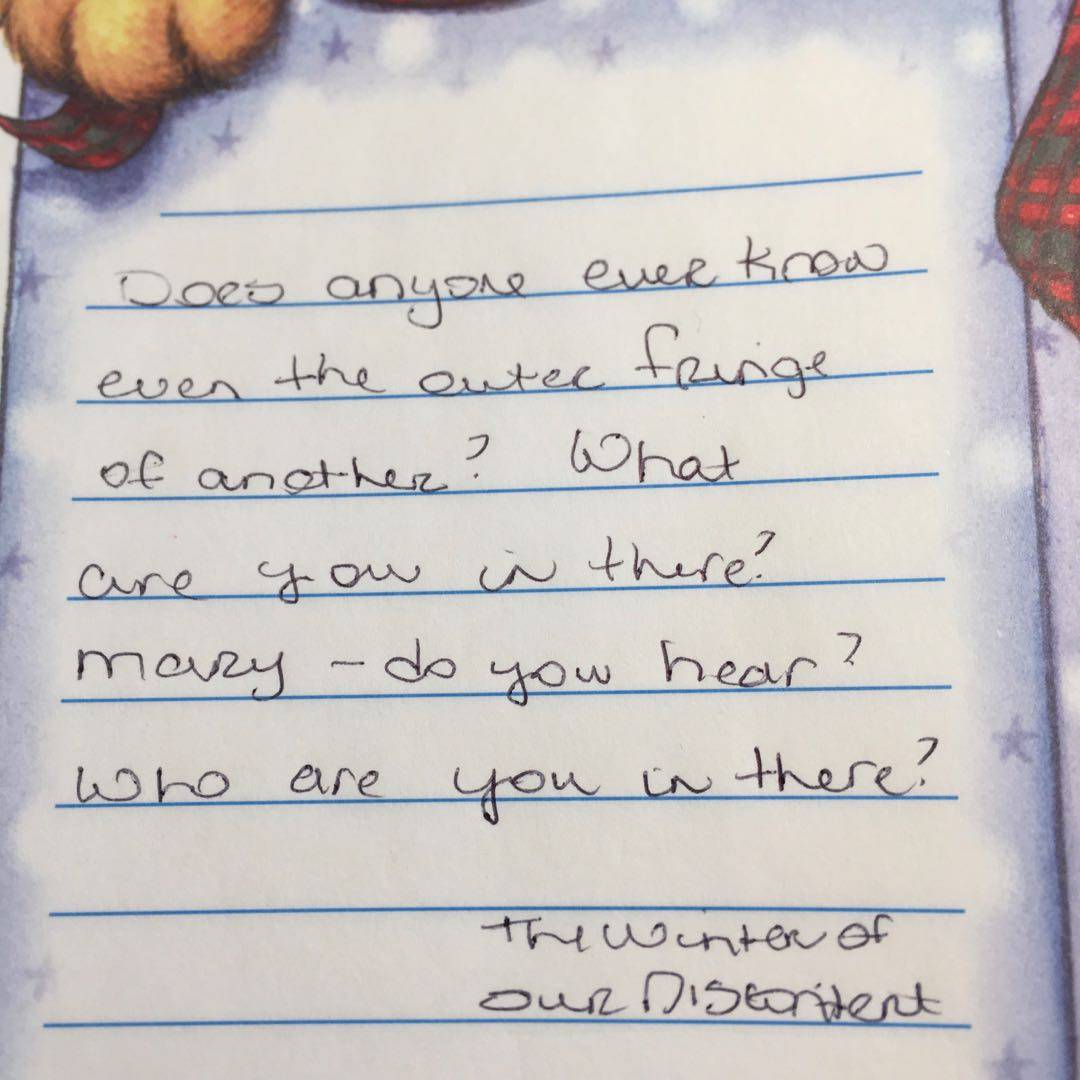 Does anyone ever know
even the outer fringe
of another? What
are you in there?
Mary - do you hear?
Who are you in there?
The Winter of
our Discontent